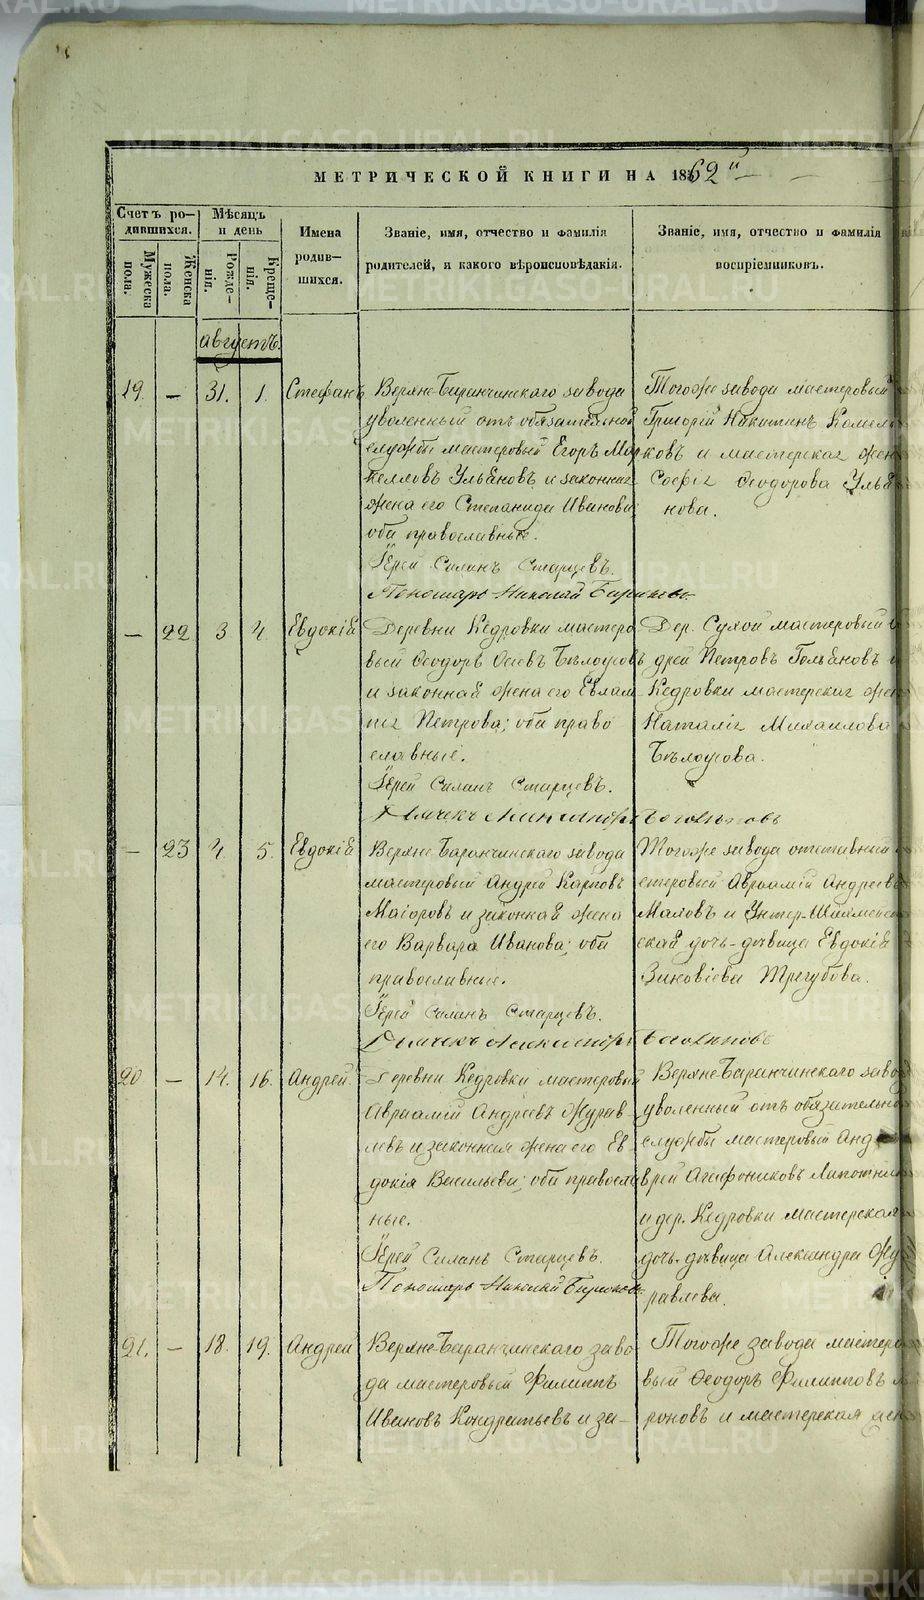 МЕТРИЧЕСКОЙ КНИГИ НА 1862й
Счетъ ро-
дившихся.
Мужеска
пола.
Женска
пола.
Мѣсяцъ
и день
Рожде-
нія.
Креще-
нія.
Имена
родив-
шихся.
Званіе, имя, отчество и фамилія
родителей, и какого вѣроисповѣданія.
Званіе, имя, отчество и фамилія
воспріемниковъ.
августъ.
19. — 31. 1. Стефанъ
Верхне-Баранчинскаго завода
уволенный отъ обязательной
службы мастеровый Егоръ Мар
келловъ Ульяновъ и законная
жена его Степанида Иванова
оба православные.
Іерей Силинъ Старцевъ.
Пономарь Николай Бирюковъ
Тогоже завода мастеровый
Григорій Никитинъ
ковъ и мастерская жен
Софія Ѳеодорова Улья
нова.
— 22 3 4. Евдокія
Деревни Кедровки мастеро
вый Ѳеодоръ Осіевъ Бѣлоусовъ
и законная жена его Евлам
пія Петрова; оба право
славные.
Іерей Силинъ Старцевъ.
Дьячекъ Александръ Боголѣповъ
Дер. Сухой мастеровый
дрей Петровъ Гольяновъ и
Кедровки мастерская жен
Наталія Михаилова
Бѣлоусова.
— 23 4. 5. Евдокія
Верхне-Баранчинскаго завода
мастеровый Андрей Карповъ
Маіоровъ и законная жена
его Варвара Иванова; оба
православные.
Іерей Силинъ Старцевъ.
Дьячекъ Александръ Боголѣповъ
Тогоже завода отставный
стеровый Авраамій Андреевъ
Маловъ и Унтер-Шихмейс
ская дочь-дѣвица Евдокія
Зиновіева Трегубова.
20 — 14. 16. Андрей
Деревни Кедровки мастеровый
Авраамій Андреевъ Журав
левъ и законная жена его Ев
докія Васильева; оба правосла
вные.
Іерей Силинъ Старцевъ.
Пономарь Николай Бирюковъ
Верхне-Баранчинскаго завод
уволенный отъ обязательной
службы мастеровый Анд
рей Агафониковъ Лапотник
и дер. Кедровки мастерская
дочь-дѣвица Александра Жу
равлева.
21. — 18. 19. Андрей
Верхне-Баранчинскаго заво
да мастеровый Филиппъ
Ивановъ Кондратьевъ и за-
Тогоже завода мастеро
вый Ѳеодоръ Филипповъ
роновъ и мастерская жен
METRIKI.GASO-URAL.RU